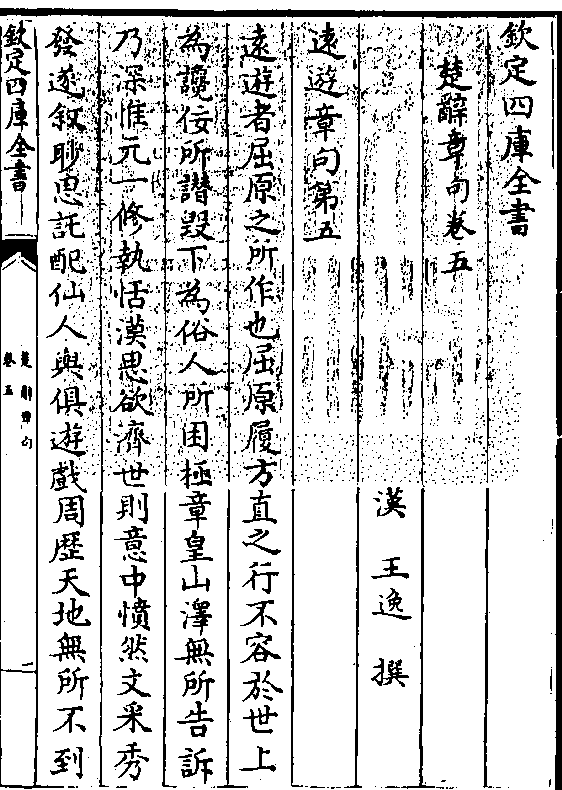 欽定四庫全書
楚辭章句卷五
漢 王逸 撰
遠遊章句第五
遠遊者屈原之所作也屈原履方直之行不容於世上
為讒佞所譖毀下為俗人所困極章皇山澤無所告訴
乃深惟元一修執恬漠思欲濟世則意中憤然文采秀
發遂敘聊思託配仙人與俱遊戲周歷天地無所不到
欽定四庫全書
楚辭章句
卷五
一